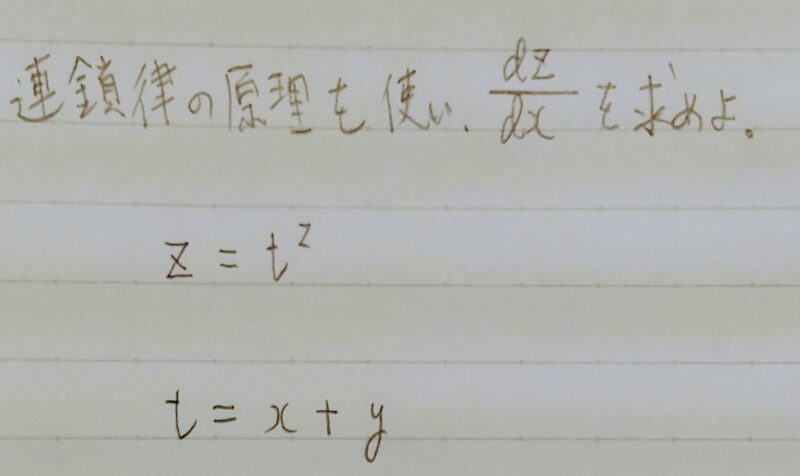 連鎖律の原理を使い、dz/dx を求めよ。
z = t²
t = x + y